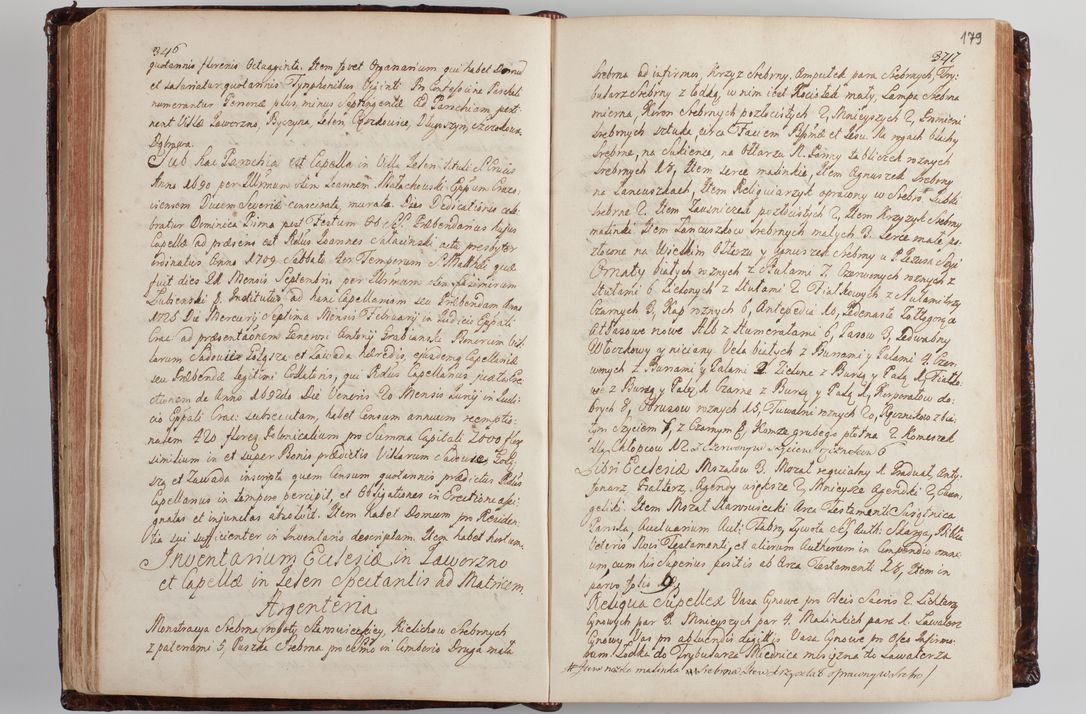 346
quotannis florenis Octuaginta. Item fovet Organarium qui habet Domum
et salariatur quotannis Tymphonibus Viginti In Catastrine Parochali
numerantur Personæ plus, minus Septingentæ Ad Parochiam perti
nent Villæ Jaworzno, Byczyna, Jeleń, Ciężkowice, Długoszyn, Szczakowa
Dąbrowa.
Sub hac Parochia est Capella in Villa Jelen tituli S. Crucis
Anno 1690 per Illrmum olim Joannem Małachowski Eppum Craco
viensem Ducem Severiæ consecrata, murata. Dies Dedicationis cele
bratur Dominica Prima post Festum
Capellæ ad præsens est Rdus Joannes Salaciński, actu presbyter
ordinatus Anno 1709 Sabbato Quatuor Temporum S. Matthæi quæ
fuit dies 21 Mensis Septembris per Illrmum olim Casimirum
Łubieński
1725 Die Mercurij Septima Mensis Februarij in Judicio Eppali
Crac: ad præsentationem Generosi Antonij Grabianski Bonorum Vil
larum Sadowice Zołyza et Zawada hæredis, ejusdemq Capellaniæ
seu Præbendæ legitimi Collatoris, qui Rdus Capellanus juxta Ere
ctionem de Anno 1692do Die Veneris 20 Mensis Junij in Judi
cio Eppali Crac: subsecutam, habet Censum annuum reemptio
nalem 420 floreq Polonicalium pro Summa Capitali 2000 flor
similium in et super Bonis prædictis Villarum Sadowice, Zoły
za, et Zawada inscripta quem Censum quotannis prædictus Rdus
Capellanus in tempore percipit, et Obligationes in Erectione assi
gnatas et injunctas absolvit. Item habet Domum pro Residen
tia sui sufficienter in Inventario descriptam. Item habet hortum.
Inventarium Ecclesiæ in Jaworzno
et Capellæ in Jelen Spectantis ad Matricem
Argenteria
Monstracya Srebrna roboty Staroświeckiey, Kielichow Srebrnych
z patenami 5, Puszka Srebrna pro Cimb in Ciborio Druga mała
179
347
Srebrna ad infirmos, Krzyż Srebrny, Ampułek para Srebrnych, Try
bularz Srebrny z łodką, w nim iest Kociołek mały, Lampa Srebrna
mierna, Koron Srebrnych pozłocistych 2, Mnieyszych 2, Promieni
Srebrnych sztuka circa Faciem Bssmæ et Jesu. Na rogach blachy
Srebrne, na Sukience, na Ołtarzu N. Panny tabliczek roznych
Srebrnych 18, Item Serce malinkie, Item Agnuszek Srebrny
na Łancuszkach, Item Religwiarzyk oprawny w Srebro
Srebrne 2. Item Zausniczek pozłocistych 2, Item Krzyżyk Srebrny
malinki Item Łancuszkow Srebrnych małych 3. Serce małe po
złocone na Wielkim Ołtarzu y Agnuszek Srebrny u P. Jezusa Szyi
Ornaty białych roznych z Stułami 7. Czerwonych roznych z
Stułami 6 Zielonych z Stułami 2 Fiałkowych z Stułami trzy
Czarnych 3, Kap roznych 6, Antepedia 10,
Atłasowe nowe Alb z Humerałami 6, Pasow 3, Jedwabny
Włoczkowy y niciany. Vela białych z Bursami y Palami 4 Czer
wonych z Bursami y Palami 2 Zielone z Bursą y Palą 1, Fiałko
we z Bursą y Palą 1 Czarne z Bursą y Palą 1, Korporałow do
brych 8, Obrusow roznych 15, Tuwalni roznych 20, Ręcznikow z bia
łym szyciem 6, z Czarnym 8, Komże grubego płotna 2. Komeżek
dla Chłopcow No 2. z Czerwonym szyciem ręcznikow 6
Libri Ecclesiæ Mszałow 3. Mszał requialny 1. Gradual, Anty
fonarz Psałterz, Agendy większe 2, Mnieysze Agendki 2, Ewan
geliki. Item Mszał Starowiecki Arca Testamenti Swiątnica
Panska, Auctuarium Aut: Fabri, Zywota SS, Auth: Skarga, Biblia
Veteris Novi Testamenti, et aliorum Authorum in Compendio omni
um, cum his superius positis ab Arca Testamenti 28, Item in
parvo folio 9.
Reliqua Supellex Vasa Cynowe pro Oleis Sacris 2. Lichtarzy
Cynowych par 3. Mnieyszych par 4. Malinkich para 1. Lawaterz
Cynowy Vas pro abluendis digitis Vasa Cynowe pro Oleo Infirmo
rum. Łodka do Trybularza Miednica mosiężna do Lawaterza
# Item nozka malinka Srebrna Item krzyżyk oprawny w srebro/